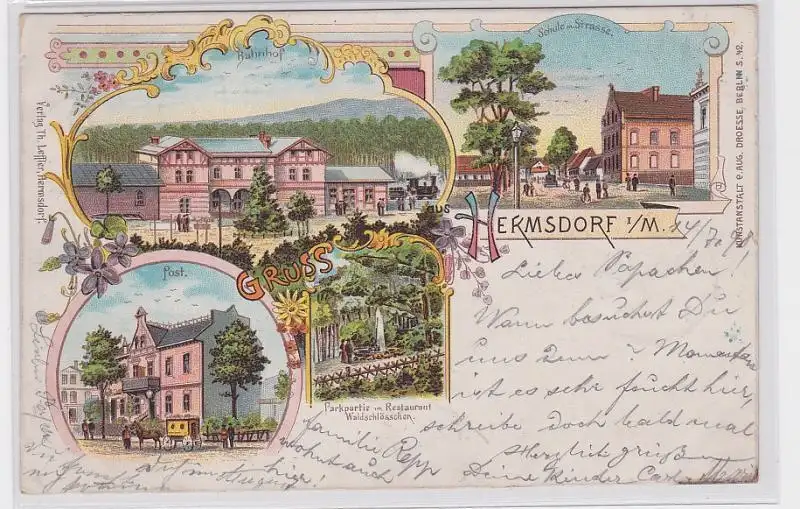 Bahnhof
Schule u. Strasse.
Verlag Th. Leffler, Hermsdorf.
KUNSTANSTALT v. AUG. DROESSE, BERLIN S. 42.
GRUSS
AUS
HERMSDORF i/M.
Post.
Parkpartie im Restaurant
Waldschlösschen.
Liebes Papachen!
Wann besuchst Du
uns denn? Momentan
ist es sehr feucht hier,
schreibe doch bald mal
Herzlich grüßen
Deine Kinder Carl
Familie Repp
wohnt auch
hier